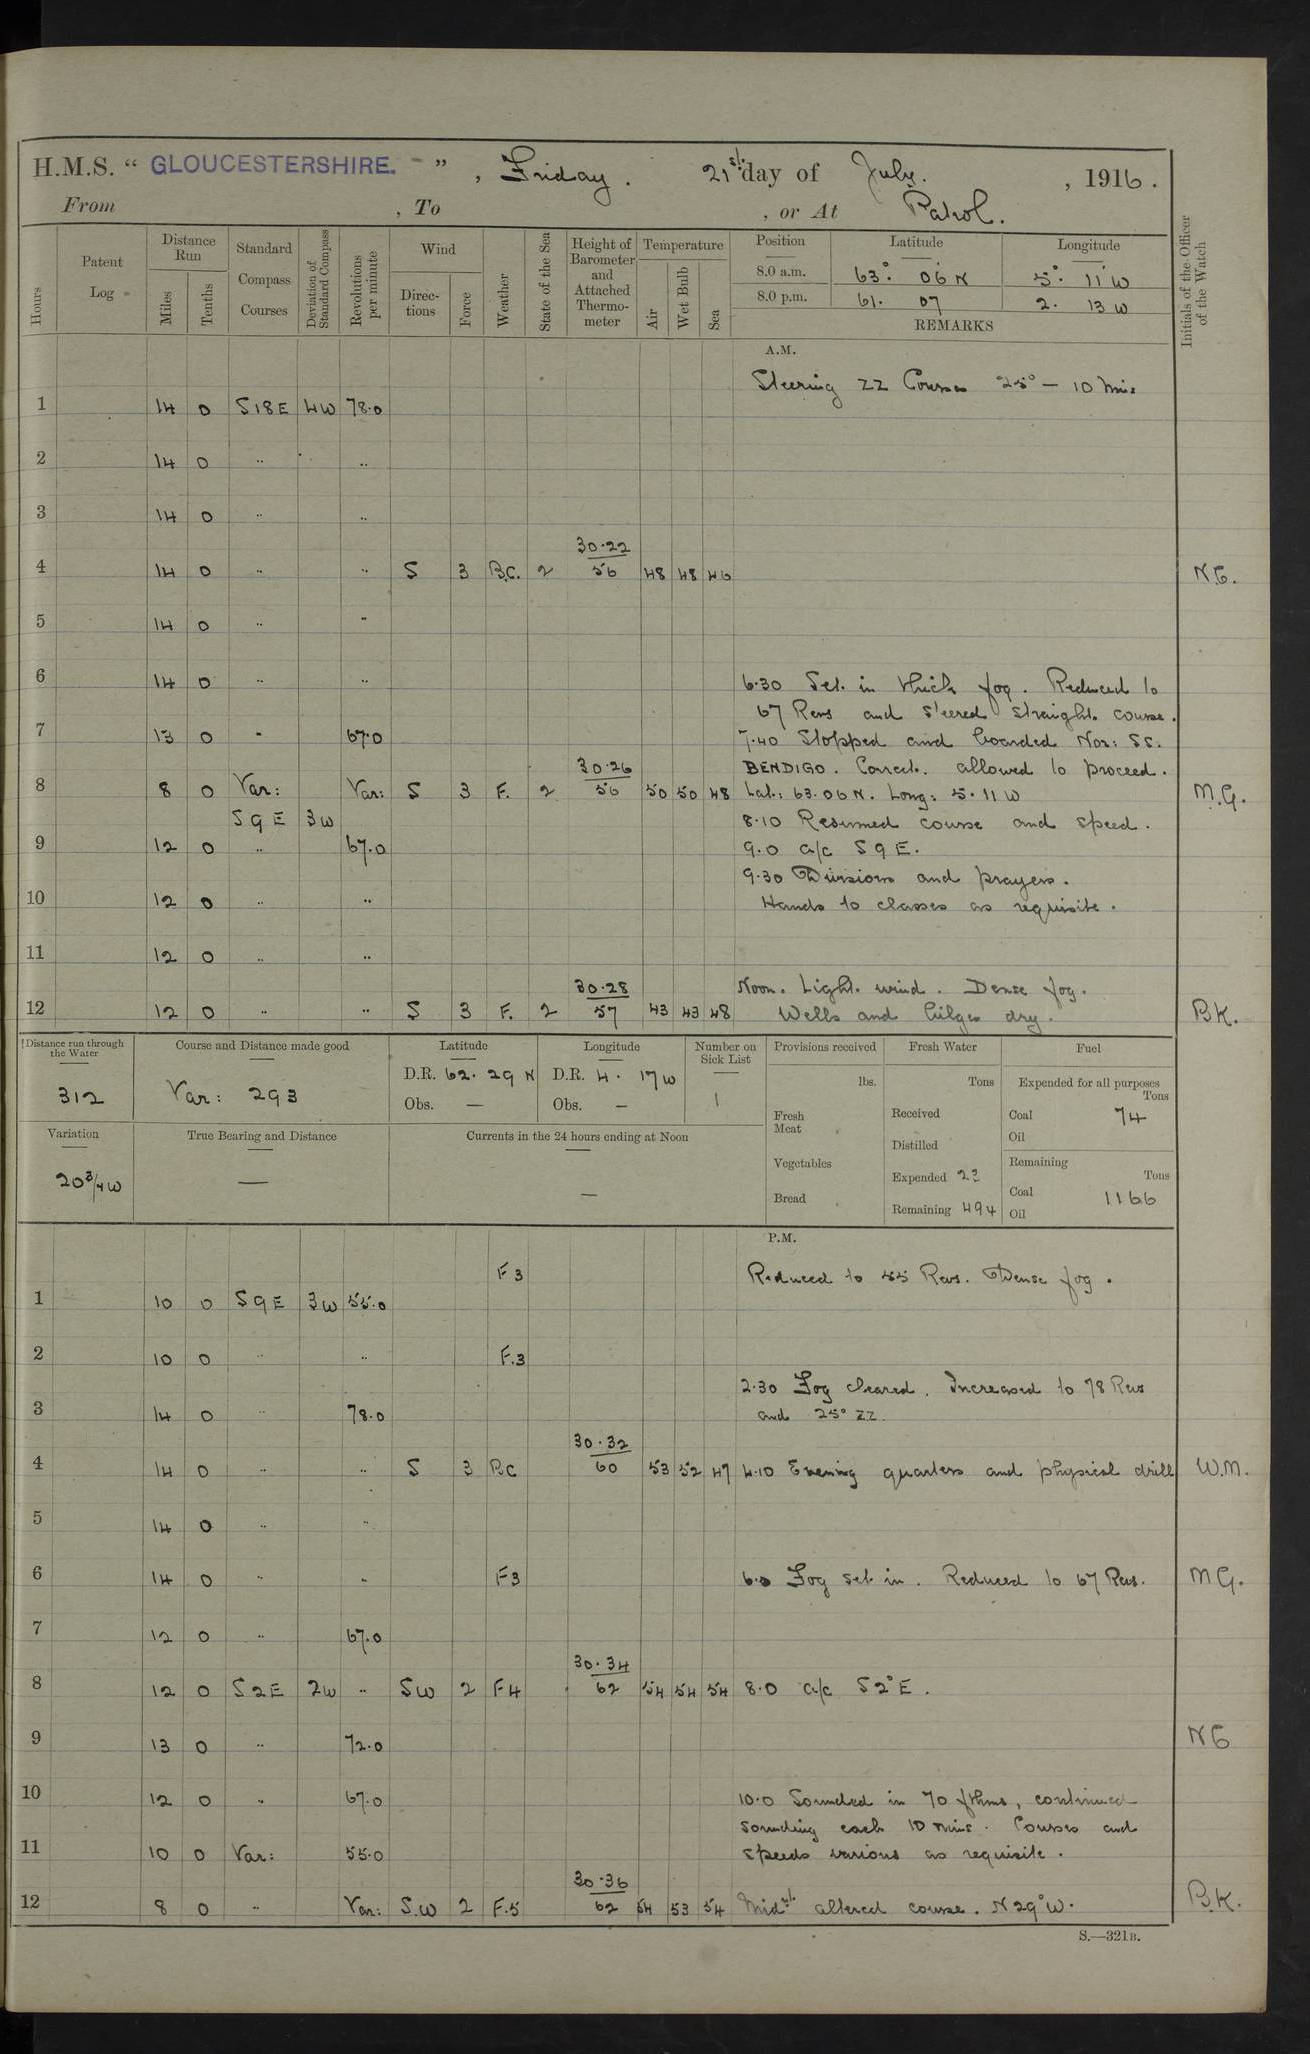 H.M.S. “ GLOUCESTERSHIRE. ” , Friday. 21st day of July. , 1916.
From , To , or At Patrol.
Hours
Patent Log
Distance Run
Miles
Tenths
Standard Compass Courses
Deviation of Standard Compass
Revolutions per minute
Wind
Directions
Force
Weather
State of the Sea
Height of Barometer and Attached Thermometer
Temperature
Air
Wet Bulb
Sea
Position Latitude Longitude
8.0 a.m. 63° 06' N 5° 11' W
8.0 p.m. 61. 07 2. 13 W
REMARKS
Initials of the Officer of the Watch
A.M.
Steering ZZ Courses 25° — 10 mins
1 14 0 S18E 4W 78.0
2 14 0 " "
3 14 0 " "
30.22
4 14 0 " " S 3 B.C. 2 56 48 48 46 N.G.
5 14 0 " "
6 14 0 " " 6.30 Set in thick fog. Reduced to
67 Revs and steered straight course.
7 13 0 " 67.0 7.40 Stopped and boarded Nor: SS.
30.26 BENDIGO. Correct. allowed to proceed.
8 8 0 Var: Var: S 3 F. 2 56 50 50 48 Lat: 63.06 N. Long: 5.11 W M.G.
S9E 3W 8.10 Resumed course and speed.
9 12 0 " 67.0 9.0 a/c S9E.
9.30 Divisions and prayers.
10 12 0 " " Hands to classes as requisite.
11 12 0 " "
30.28 Noon. Light wind. Dense fog.
12 12 0 " " S 3 F. 2 57 43 43 48 Wells and bilges dry. B.K.
Distance run through the Water
312
Course and Distance made good
Var: 293
Latitude
D.R. 62. 29 N
Obs. —
Longitude
D.R. 4. 17 W
Obs. —
Number on Sick List
1
Provisions received
lbs.
Fresh Meat
Vegetables
Bread
Fresh Water
Tons
Received
Distilled
Expended 23
Remaining 494
Fuel
Expended for all purposes
Tons
Coal 74
Oil
Remaining
Tons
Coal 1166
Oil
Variation
20 3/4 W
True Bearing and Distance
—
Currents in the 24 hours ending at Noon
—
P.M.
F3 Reduced to 55 Revs. Dense fog.
1 10 0 S9E 3W 55.0
2 10 0 " " F.3
2.30 Fog cleared. Increased to 78 Revs
3 14 0 " 78.0 and 25° ZZ.
30.32
4 14 0 " " S 3 BC 60 53 52 47 4.10 Evening quarters and physical drill W.M.
5 14 0 " "
6 14 0 " " F3 6.0 Fog set in. Reduced to 67 Revs. M G.
7 12 0 " 67.0
30.34
8 12 0 S2E 2W " SW 2 F4 62 54 54 54 8.0 a/c S2°E.
9 13 0 " 72.0 N G
10 12 0 " 67.0 10.0 Sounded in 70 fthms, continued
sounding each 10 mins. Courses and
11 10 0 Var: 55.0 speeds various as requisite.
30.36
12 8 0 " Var: S.W 2 F.5 62 54 53 54 Midnt altered course. N29°W. B.K.
S.—321B.